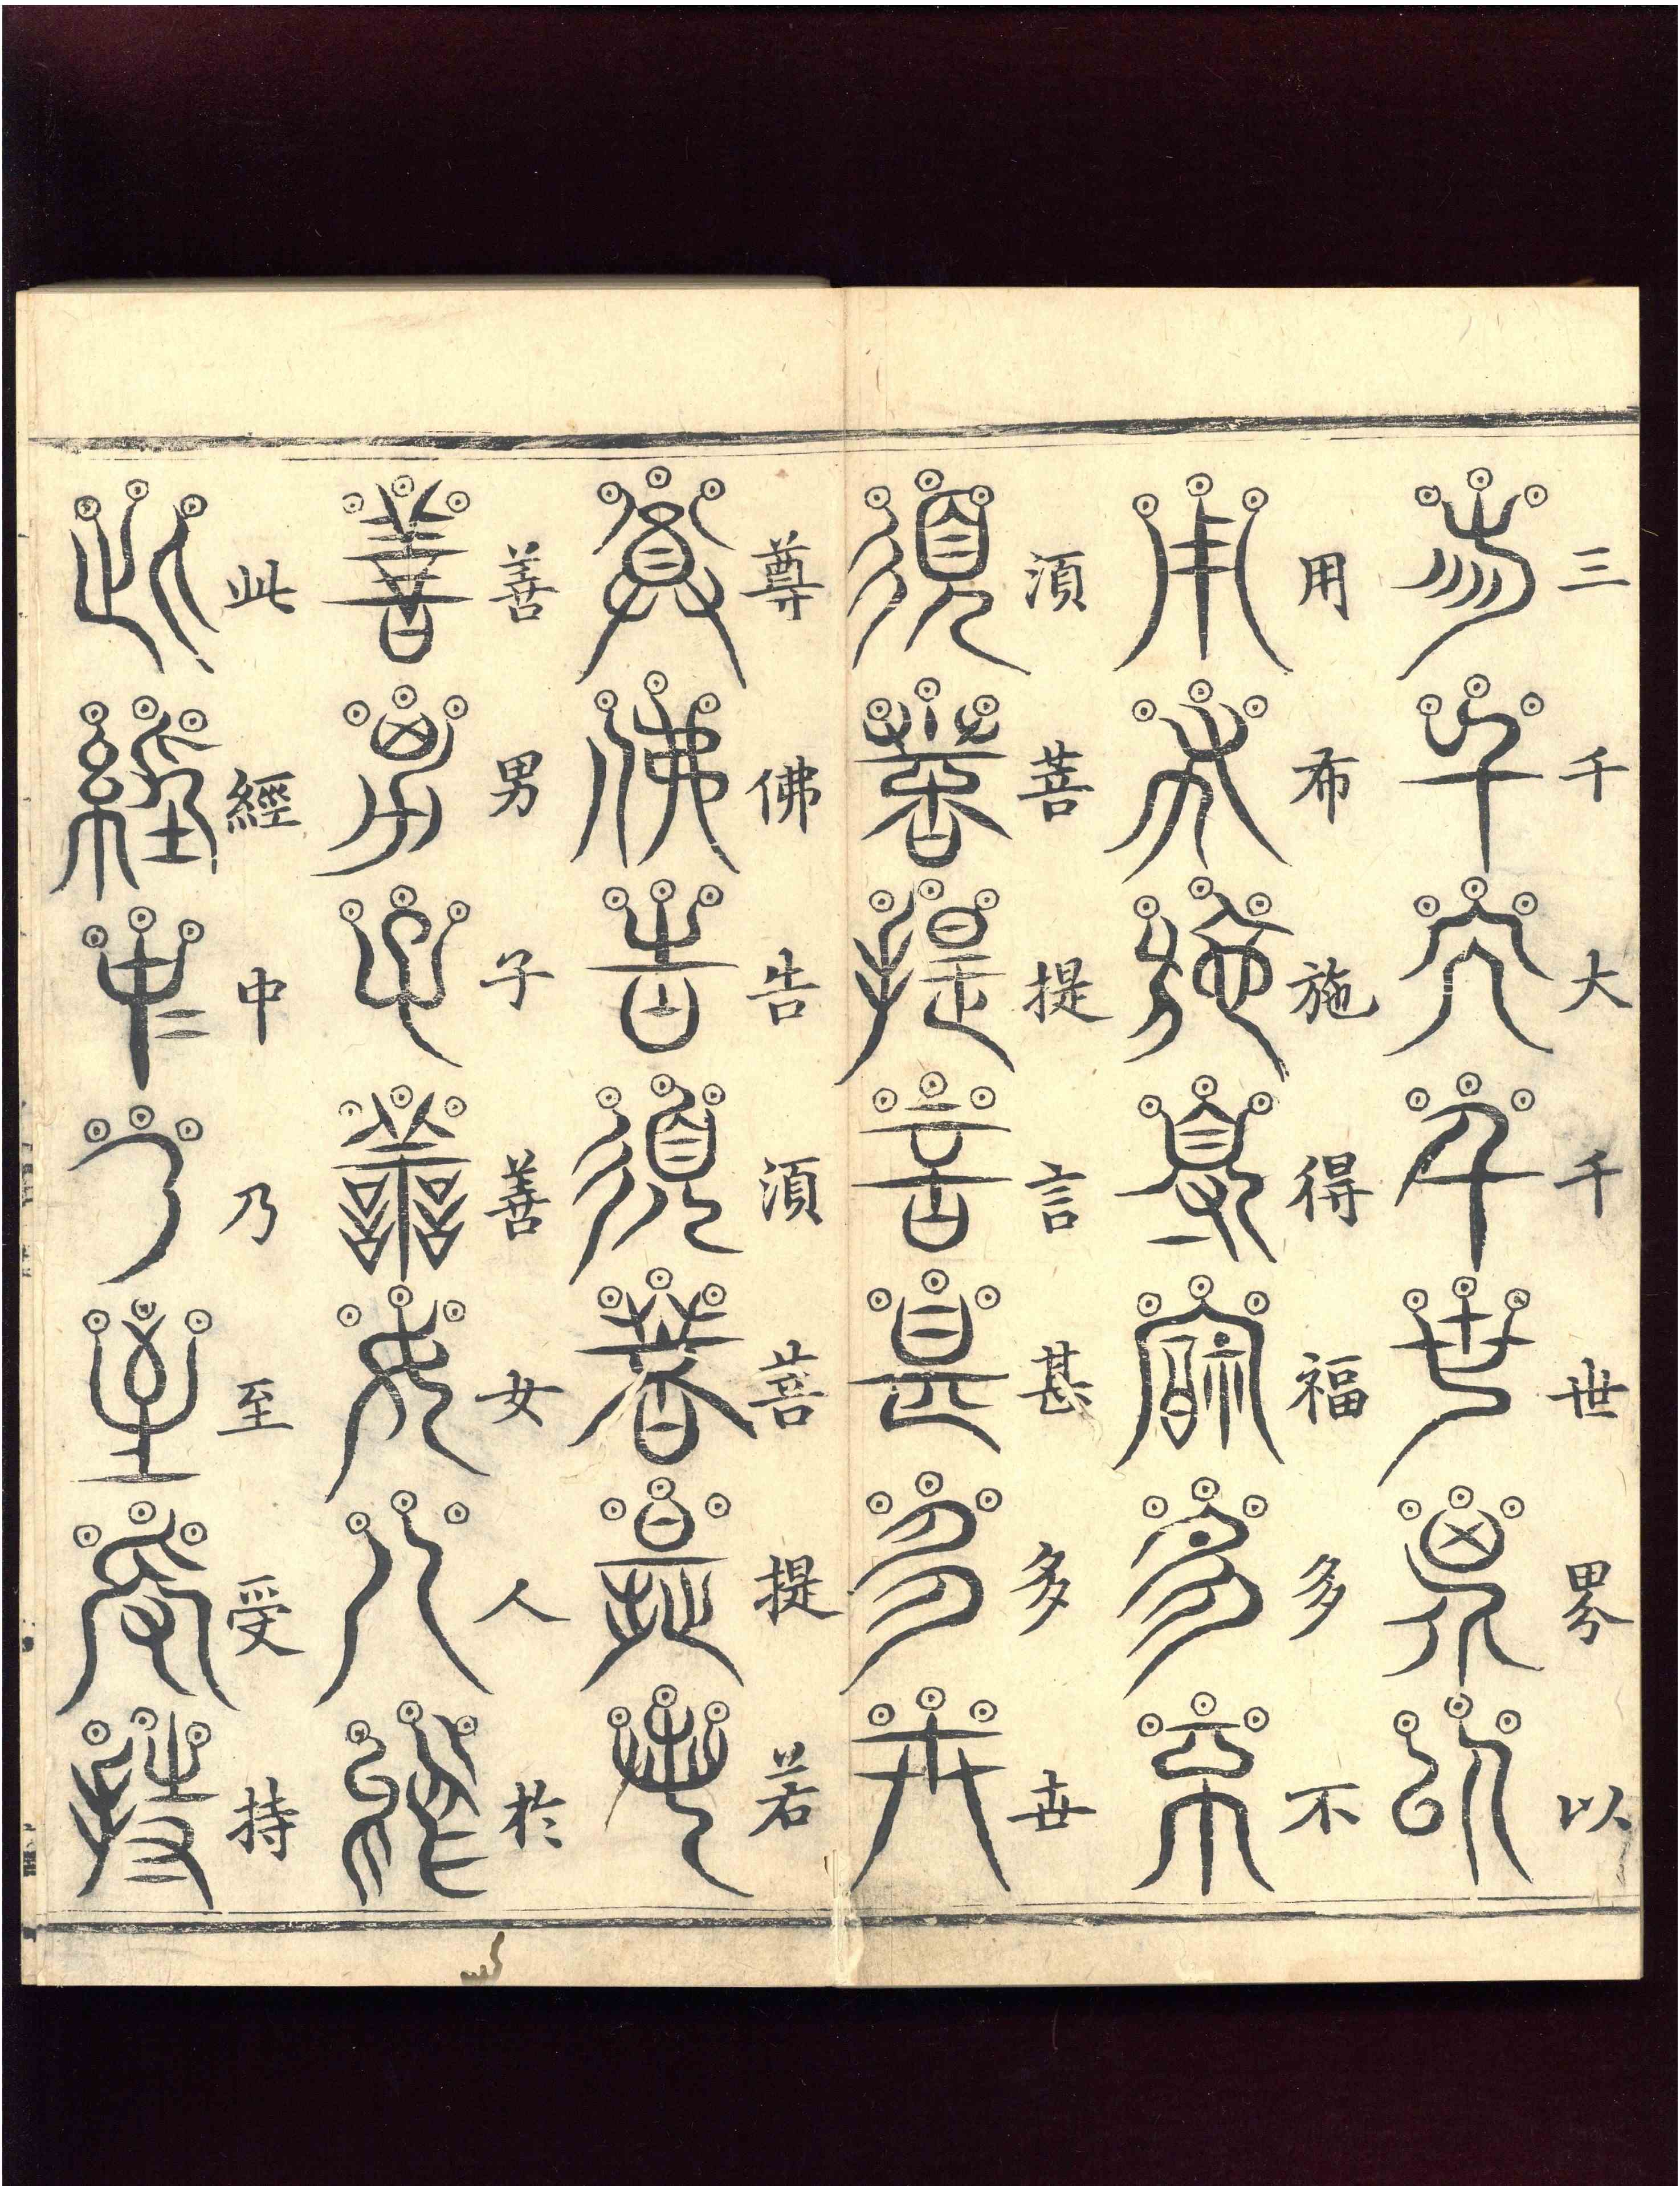 三千大千世界以
用布施得福多不
須菩提言甚多世
尊佛告須菩提若
善男子善女人於
此經中乃至受持